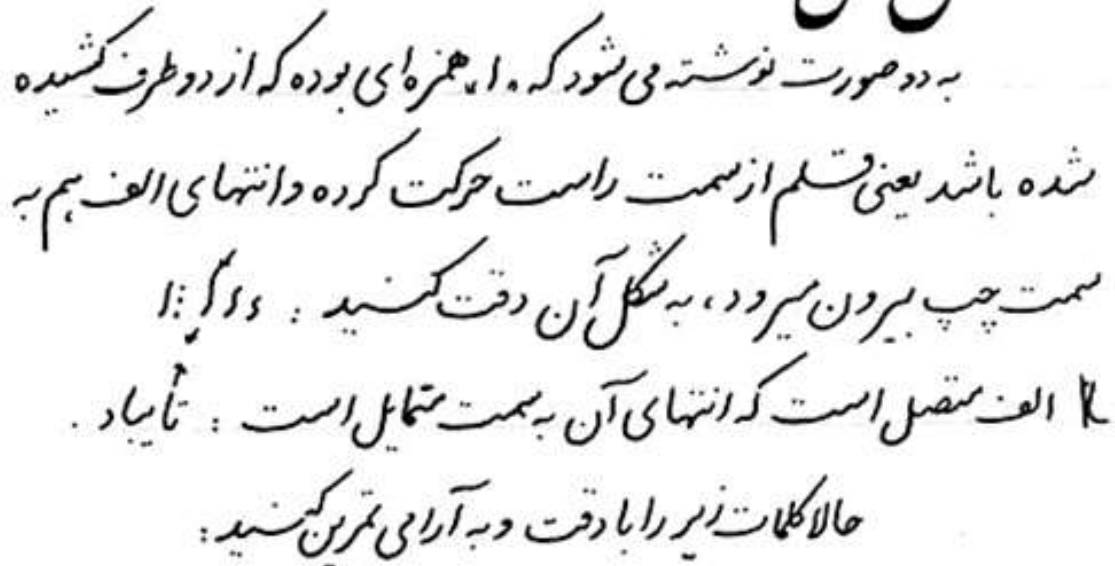 به دو صورت نوشته می شود که «ا» همزه ای بوده که از دو طرف کشیده
شده باشد یعنی قلم از سمت راست حرکت کرده و انتهای الف هم به
سمت چپ بیرون میرود، به شکل آن دقت کنید : ء ا
الف متصل است که انتهای آن به سمت متمایل است : تا بباد .
حالا کلمات زیر را با دقت و به آرامی تمرین کنید :